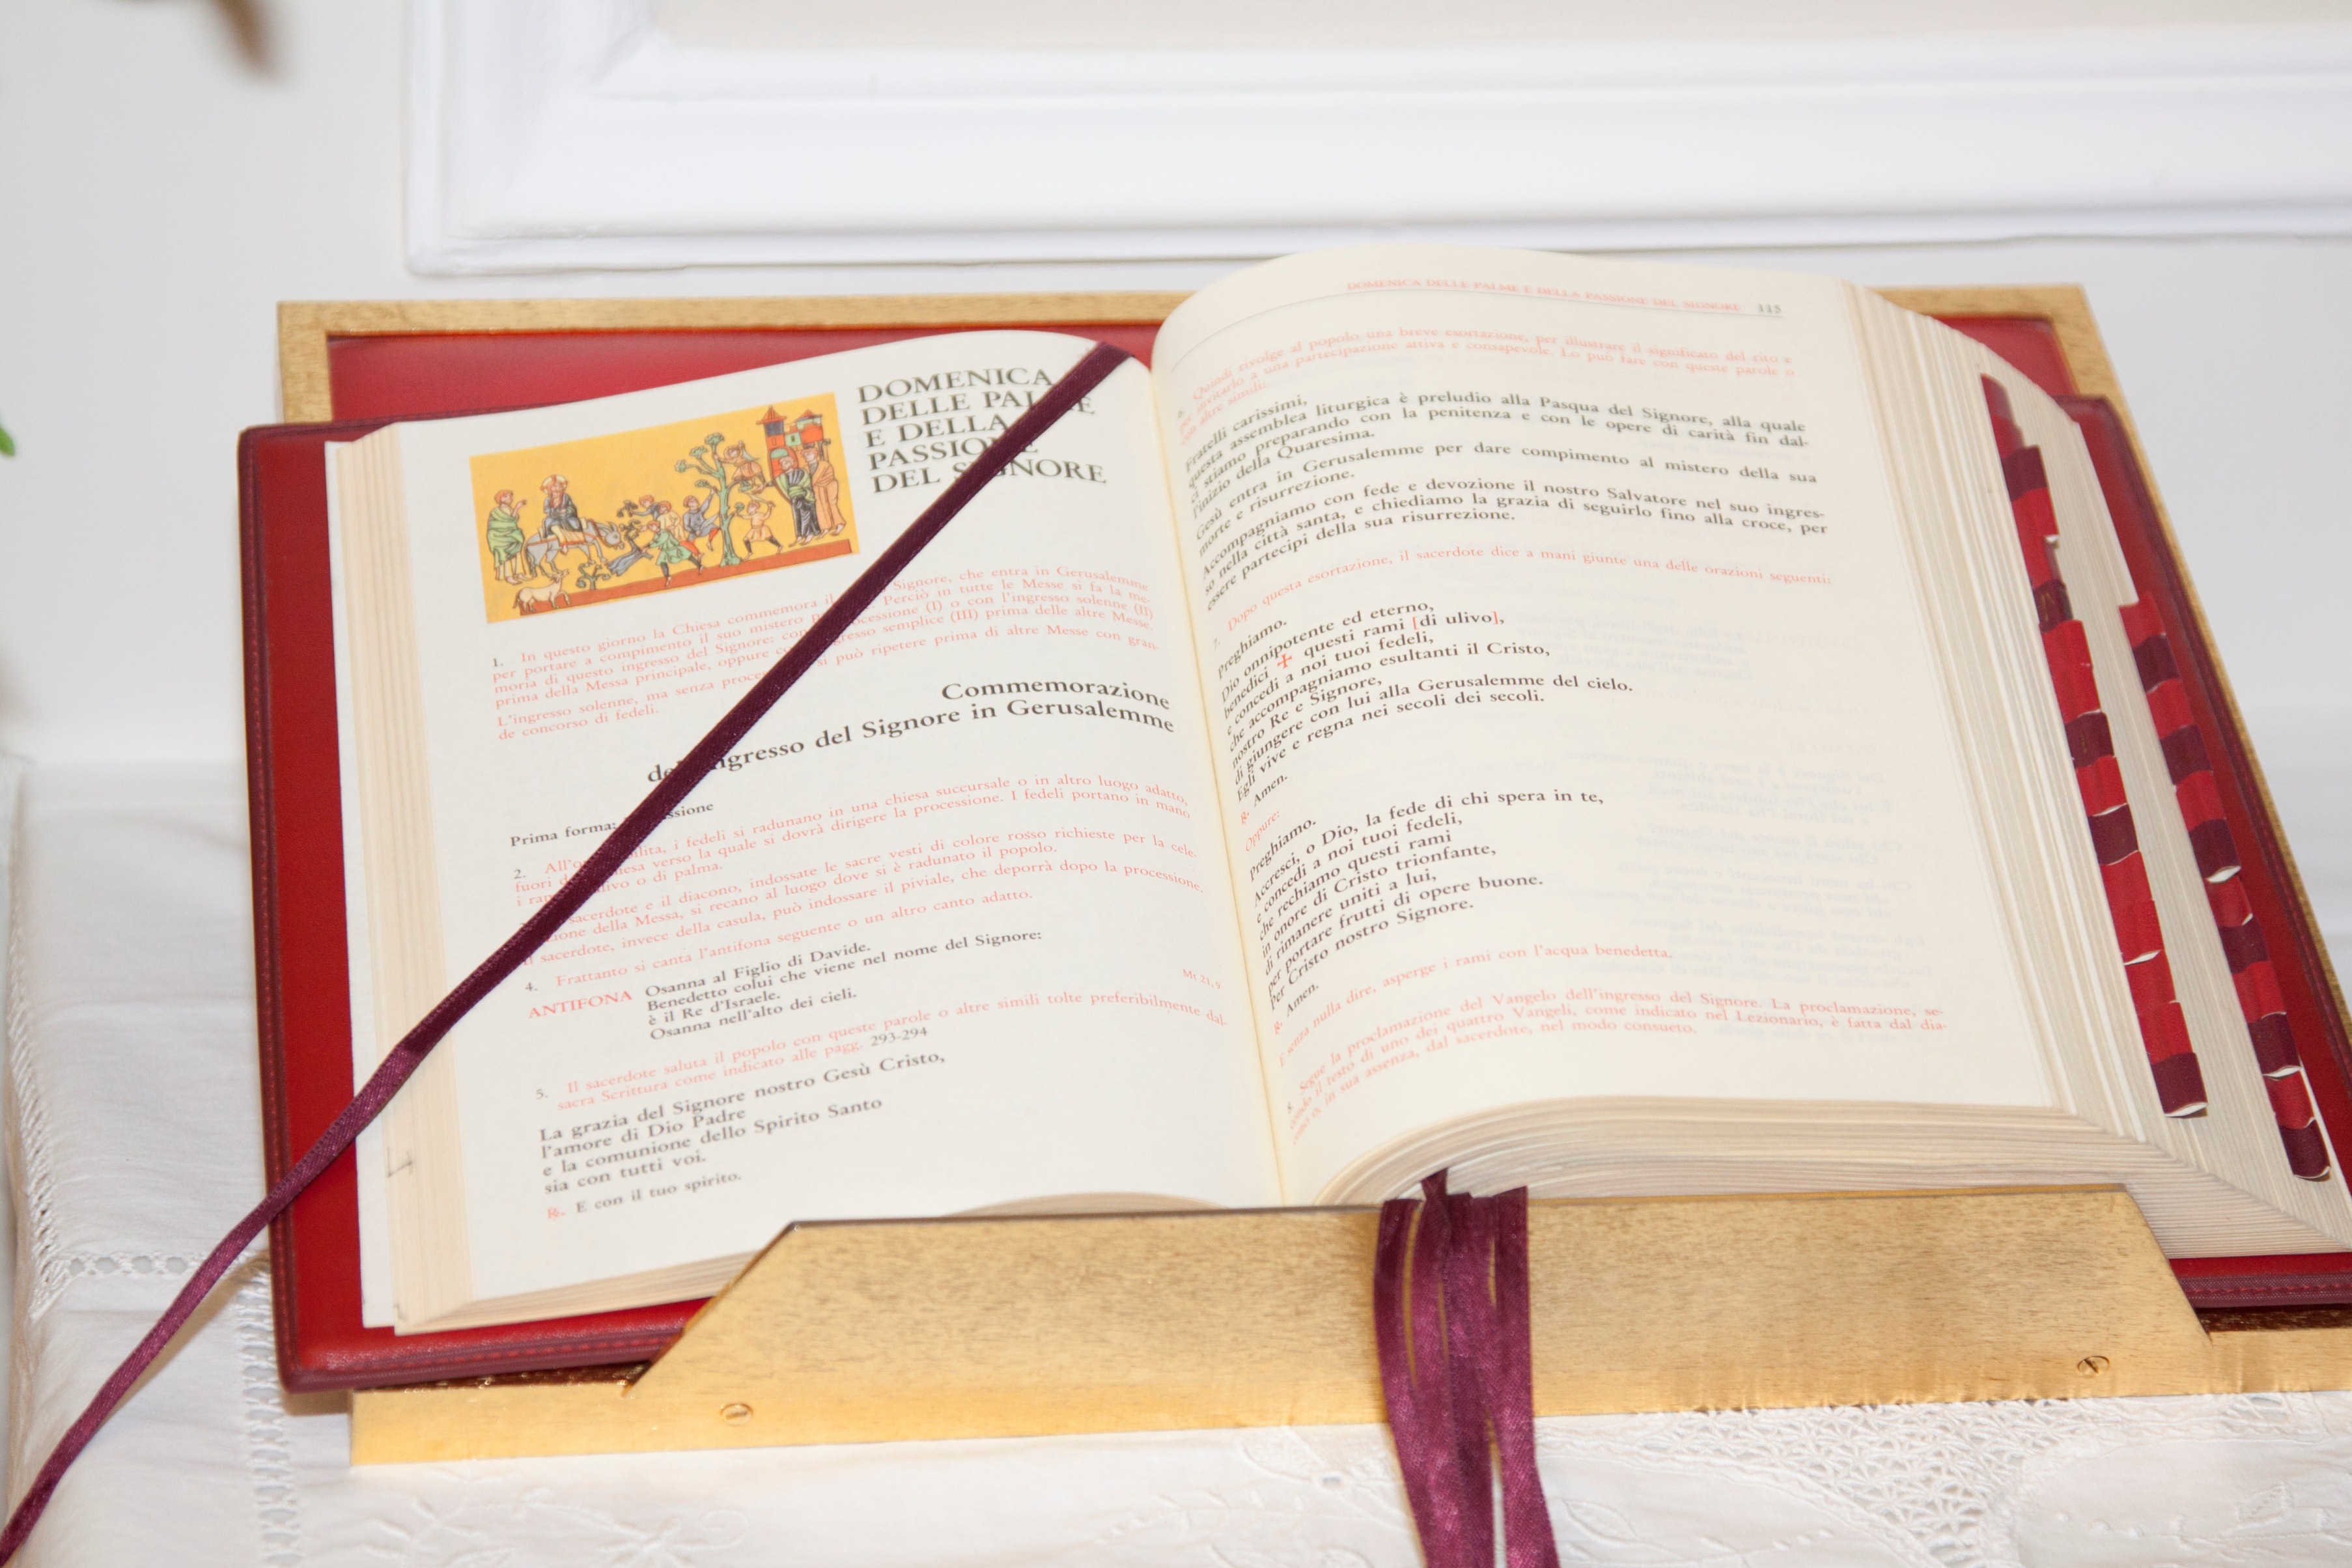 DOMENICA
DELLE PALME
E DELLA
PASSIONE
DEL SIGNORE
1. In questo giorno la Chiesa commemora il Signore, che entra in Gerusalemme
per portare a compimento il suo mistero Perciò in tutte le Messe si fa la me-
moria di questo ingresso del Signore: con processione (I) o con l'ingresso solenne (II)
prima della Messa principale, oppure con ingresso semplice (III) prima delle altre Messe.
L'ingresso solenne, ma senza processione, si può ripetere prima di altre Messe con gran-
de concorso di fedeli.
Commemorazione
dell'ingresso del Signore in Gerusalemme
Prima forma: Processione
2. All'ora stabilita, i fedeli si radunano in una chiesa succursale o in altro luogo adatto,
fuori della chiesa verso la quale si dovrà dirigere la processione. I fedeli portano in mano
i rami di ulivo o di palma.
sacerdote e il diacono, indossate le sacre vesti di colore rosso richieste per la cele-
brazione della Messa, si recano al luogo dove si è radunato il popolo.
Il sacerdote, invece della casula, può indossare il piviale, che deporrà dopo la processione.
4. Frattanto si canta l'antifona seguente o un altro canto adatto.
ANTIFONA Osanna al Figlio di Davide.
Benedetto colui che viene nel nome del Signore:
è il Re d'Israele.
Osanna nell'alto dei cieli. Mt 21,9
5. Il sacerdote saluta il popolo con queste parole o altre simili tolte preferibilmente dal-
sacra Scrittura come indicato alle pagg. 293-294
La grazia del Signore nostro Gesù Cristo,
l'amore di Dio Padre
e la comunione dello Spirito Santo
sia con tutti voi.
℟. E con il tuo spirito.
DOMENICA DELLE PALME E DELLA PASSIONE DEL SIGNORE 115
6. Quindi rivolge al popolo una breve esortazione, per illustrare il significato del rito e
per invitarlo a una partecipazione attiva e consapevole. Lo può fare con queste parole o
con altre simili:
Fratelli carissimi,
questa assemblea liturgica è preludio alla Pasqua del Signore, alla quale
ci stiamo preparando con la penitenza e con le opere di carità fin dal-
l'inizio della Quaresima.
Gesù entra in Gerusalemme per dare compimento al mistero della sua
morte e risurrezione.
Accompagniamo con fede e devozione il nostro Salvatore nel suo ingres-
so nella città santa, e chiediamo la grazia di seguirlo fino alla croce, per
essere partecipi della sua risurrezione.
7. Dopo questa esortazione, il sacerdote dice a mani giunte una delle orazioni seguenti:
Preghiamo.
Dio onnipotente ed eterno,
benedici ✠ questi rami [di ulivo],
e concedi a noi tuoi fedeli,
che accompagniamo esultanti il Cristo,
nostro Re e Signore,
di giungere con lui alla Gerusalemme del cielo.
Egli vive e regna nei secoli dei secoli.
℟. Amen.
Oppure:
Preghiamo.
Accresci, o Dio, la fede di chi spera in te,
e concedi a noi tuoi fedeli,
che rechiamo questi rami
in onore di Cristo trionfante,
di rimanere uniti a lui,
per portare frutti di opere buone.
Per Cristo nostro Signore.
℟. Amen.
E senza nulla dire, asperge i rami con l'acqua benedetta.
8. Segue la proclamazione del Vangelo dell'ingresso del Signore. La proclamazione, se-
condo il testo di uno dei quattro Vangeli, come indicato nel Lezionario, è fatta dal dia-
cono o, in sua assenza, dal sacerdote, nel modo consueto.